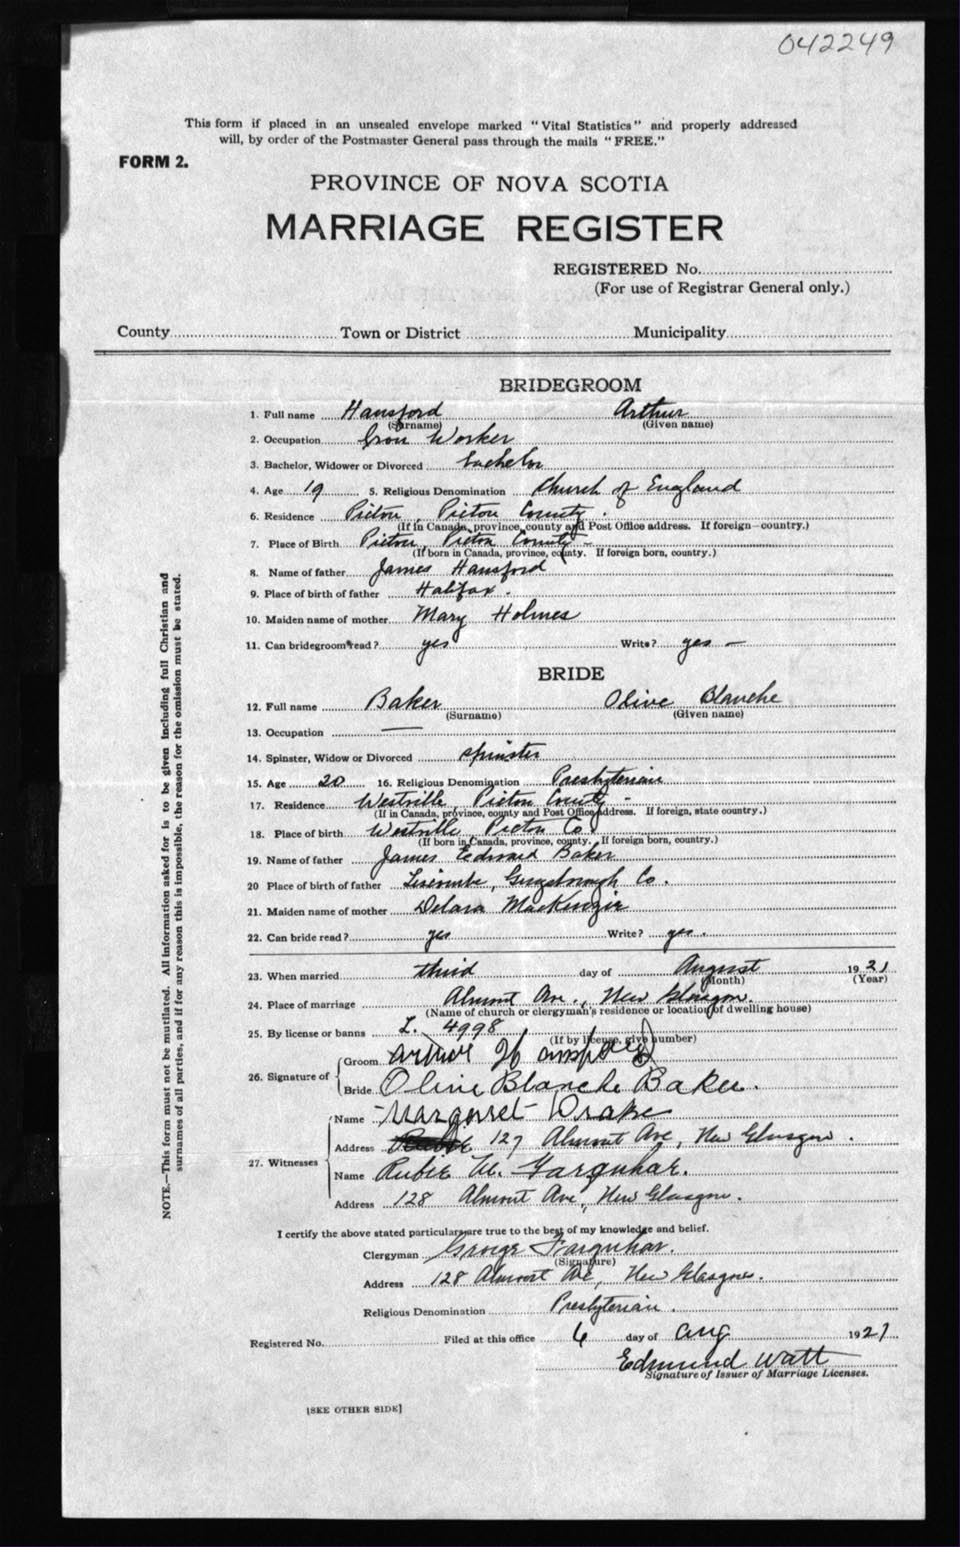 042249
This form if placed in an unsealed envelope marked "Vital Statistics" and properly addressed
will, by order of the Postmaster General pass through the mails "FREE."
FORM 2.
PROVINCE OF NOVA SCOTIA
MARRIAGE REGISTER
REGISTERED No.
(For use of Registrar General only.)
County Town or District Municipality
BRIDEGROOM
1. Full name Hansford Arthur
(Surname) (Given name)
2. Occupation Iron Worker
3. Bachelor, Widower or Divorced bachelor
4. Age 19 5. Religious Denomination Church of England
6. Residence Pictou, Pictou County.
(If in Canada, province, county and Post Office address. If foreign—country.)
7. Place of Birth Pictou, Pictou County -
(If born in Canada, province, county. If foreign born, country.)
8. Name of father James Hansford
9. Place of birth of father Halifax.
10. Maiden name of mother Mary Holmes
11. Can bridegroom read? yes Write? yes -
BRIDE
12. Full name Baker Olive Blanche
(Surname) (Given name)
13. Occupation —
14. Spinster, Widow or Divorced spinster
15. Age 20 16. Religious Denomination Presbyterian
17. Residence Westville, Pictou County -
(If in Canada, province, county and Post Office address. If foreign, state country.)
18. Place of birth Westville, Pictou Co.
(If born in Canada, province, county. If foreign born, country.)
19. Name of father James Edward Baker
20 Place of birth of father Liscombe, Guysborough Co.
21. Maiden name of mother MacKenzie
22. Can bride read? yes Write? yes.
23. When married third day of August 1921
(Month) (Year)
24. Place of marriage Almont Ave., New Glasgow.
(Name of church or clergyman's residence or location of dwelling house)
25. By license or banns L. 4998
(If by license, give number)
26. Signature of Groom Arthur Hansford
Bride Olive Blanche Baker.
27. Witnesses Name Margaret Drake
Address 127 Almont Ave, New Glasgow.
Name Rubie M. Farquhar.
Address 128 Almont Ave, New Glasgow.
I certify the above stated particulars are true to the best of my knowledge and belief.
Clergyman George Farquhar.
(Signature)
Address 128 Almont Ave, New Glasgow.
Religious Denomination Presbyterian.
Registered No. Filed at this office 6 day of Aug 1921
Edmund Watt
Signature of Issuer of Marriage Licenses.
[SEE OTHER SIDE]
NOTE.—This form must not be mutilated. All information asked for is to be given including full Christian and
surnames of all parties, and if for any reason this is impossible, the reason for the omission must be stated.